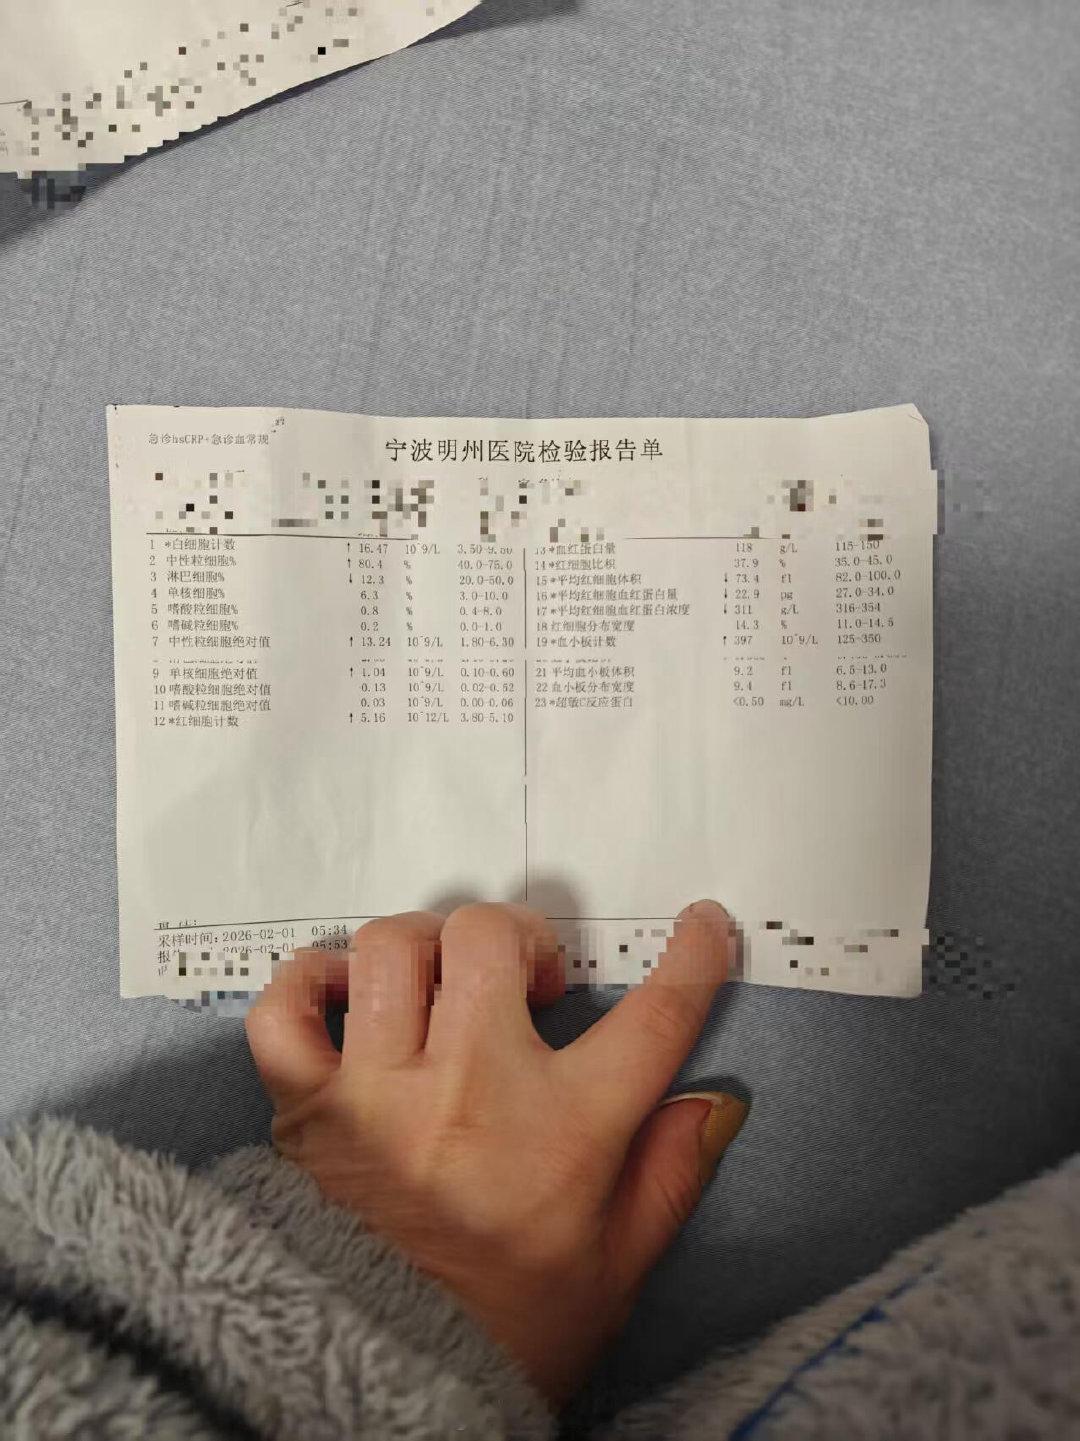 急诊hsCRP+急诊血常规
宁波明州医院检验报告单
1 *白细胞计数 ↑ 16.47 10^9/L 3.50-9.50
2 中性粒细胞% ↑ 80.4 % 40.0-75.0
3 淋巴细胞% ↓ 12.3 % 20.0-50.0
4 单核细胞% 6.3 % 3.0-10.0
5 嗜酸粒细胞% 0.8 % 0.4-8.0
6 嗜碱粒细胞% 0.2 % 0.0-1.0
7 中性粒细胞绝对值 ↑ 13.24 10^9/L 1.80-6.30
9 单核细胞绝对值 ↑ 1.04 10^9/L 0.10-0.60
10 嗜酸粒细胞绝对值 0.13 10^9/L 0.02-0.52
11 嗜碱粒细胞绝对值 0.03 10^9/L 0.00-0.06
12 *红细胞计数 ↑ 5.16 10^12/L 3.80-5.10
13 *血红蛋白量 118 g/L 115-150
14 *红细胞比积 37.9 % 35.0-45.0
15 *平均红细胞体积 ↓ 73.4 fl 82.0-100.0
16 *平均红细胞血红蛋白量 ↓ 22.9 pg 27.0-34.0
17 *平均红细胞血红蛋白浓度 ↓ 311 g/L 316-354
18 红细胞分布宽度 14.3 % 11.0-14.5
19 *血小板计数 ↑ 397 10^9/L 125-350
21 平均血小板体积 9.2 fl 6.5-13.0
22 血小板分布宽度 9.4 fl 8.6-17.3
23 *超敏C反应蛋白 <0.50 mg/L <10.00
采样时间:2026-02-01 05:34
2026-02-01 05:53